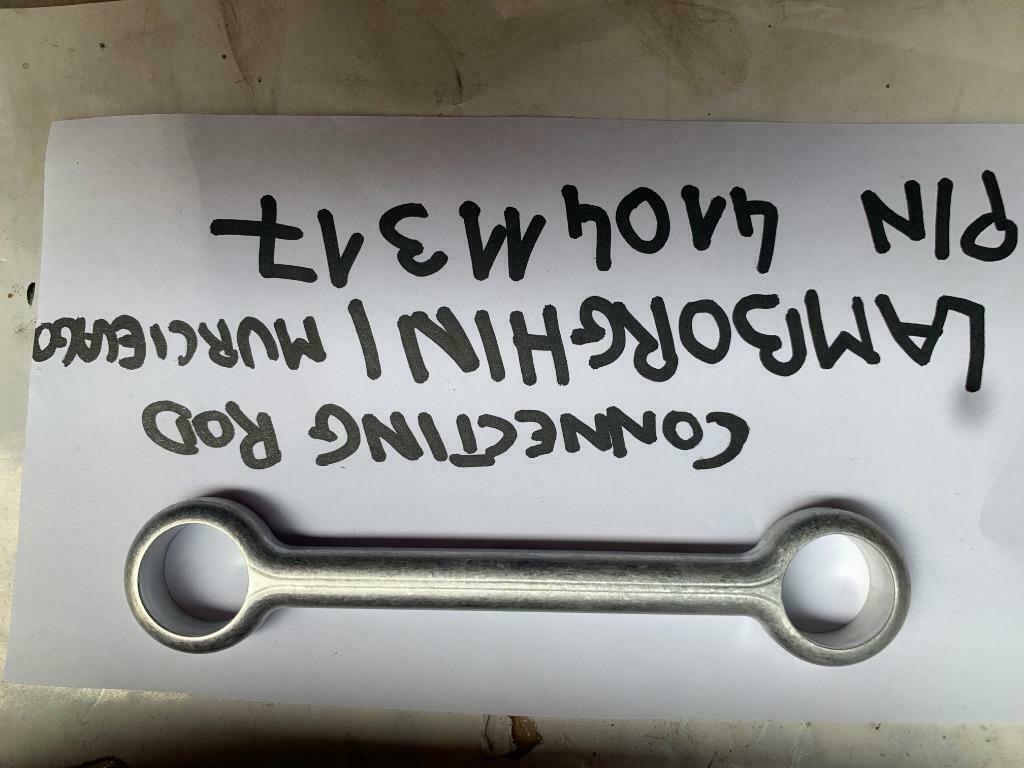 CONNECTING ROD
LAMBORGHINI MURCIELAGO
P/N 410411317